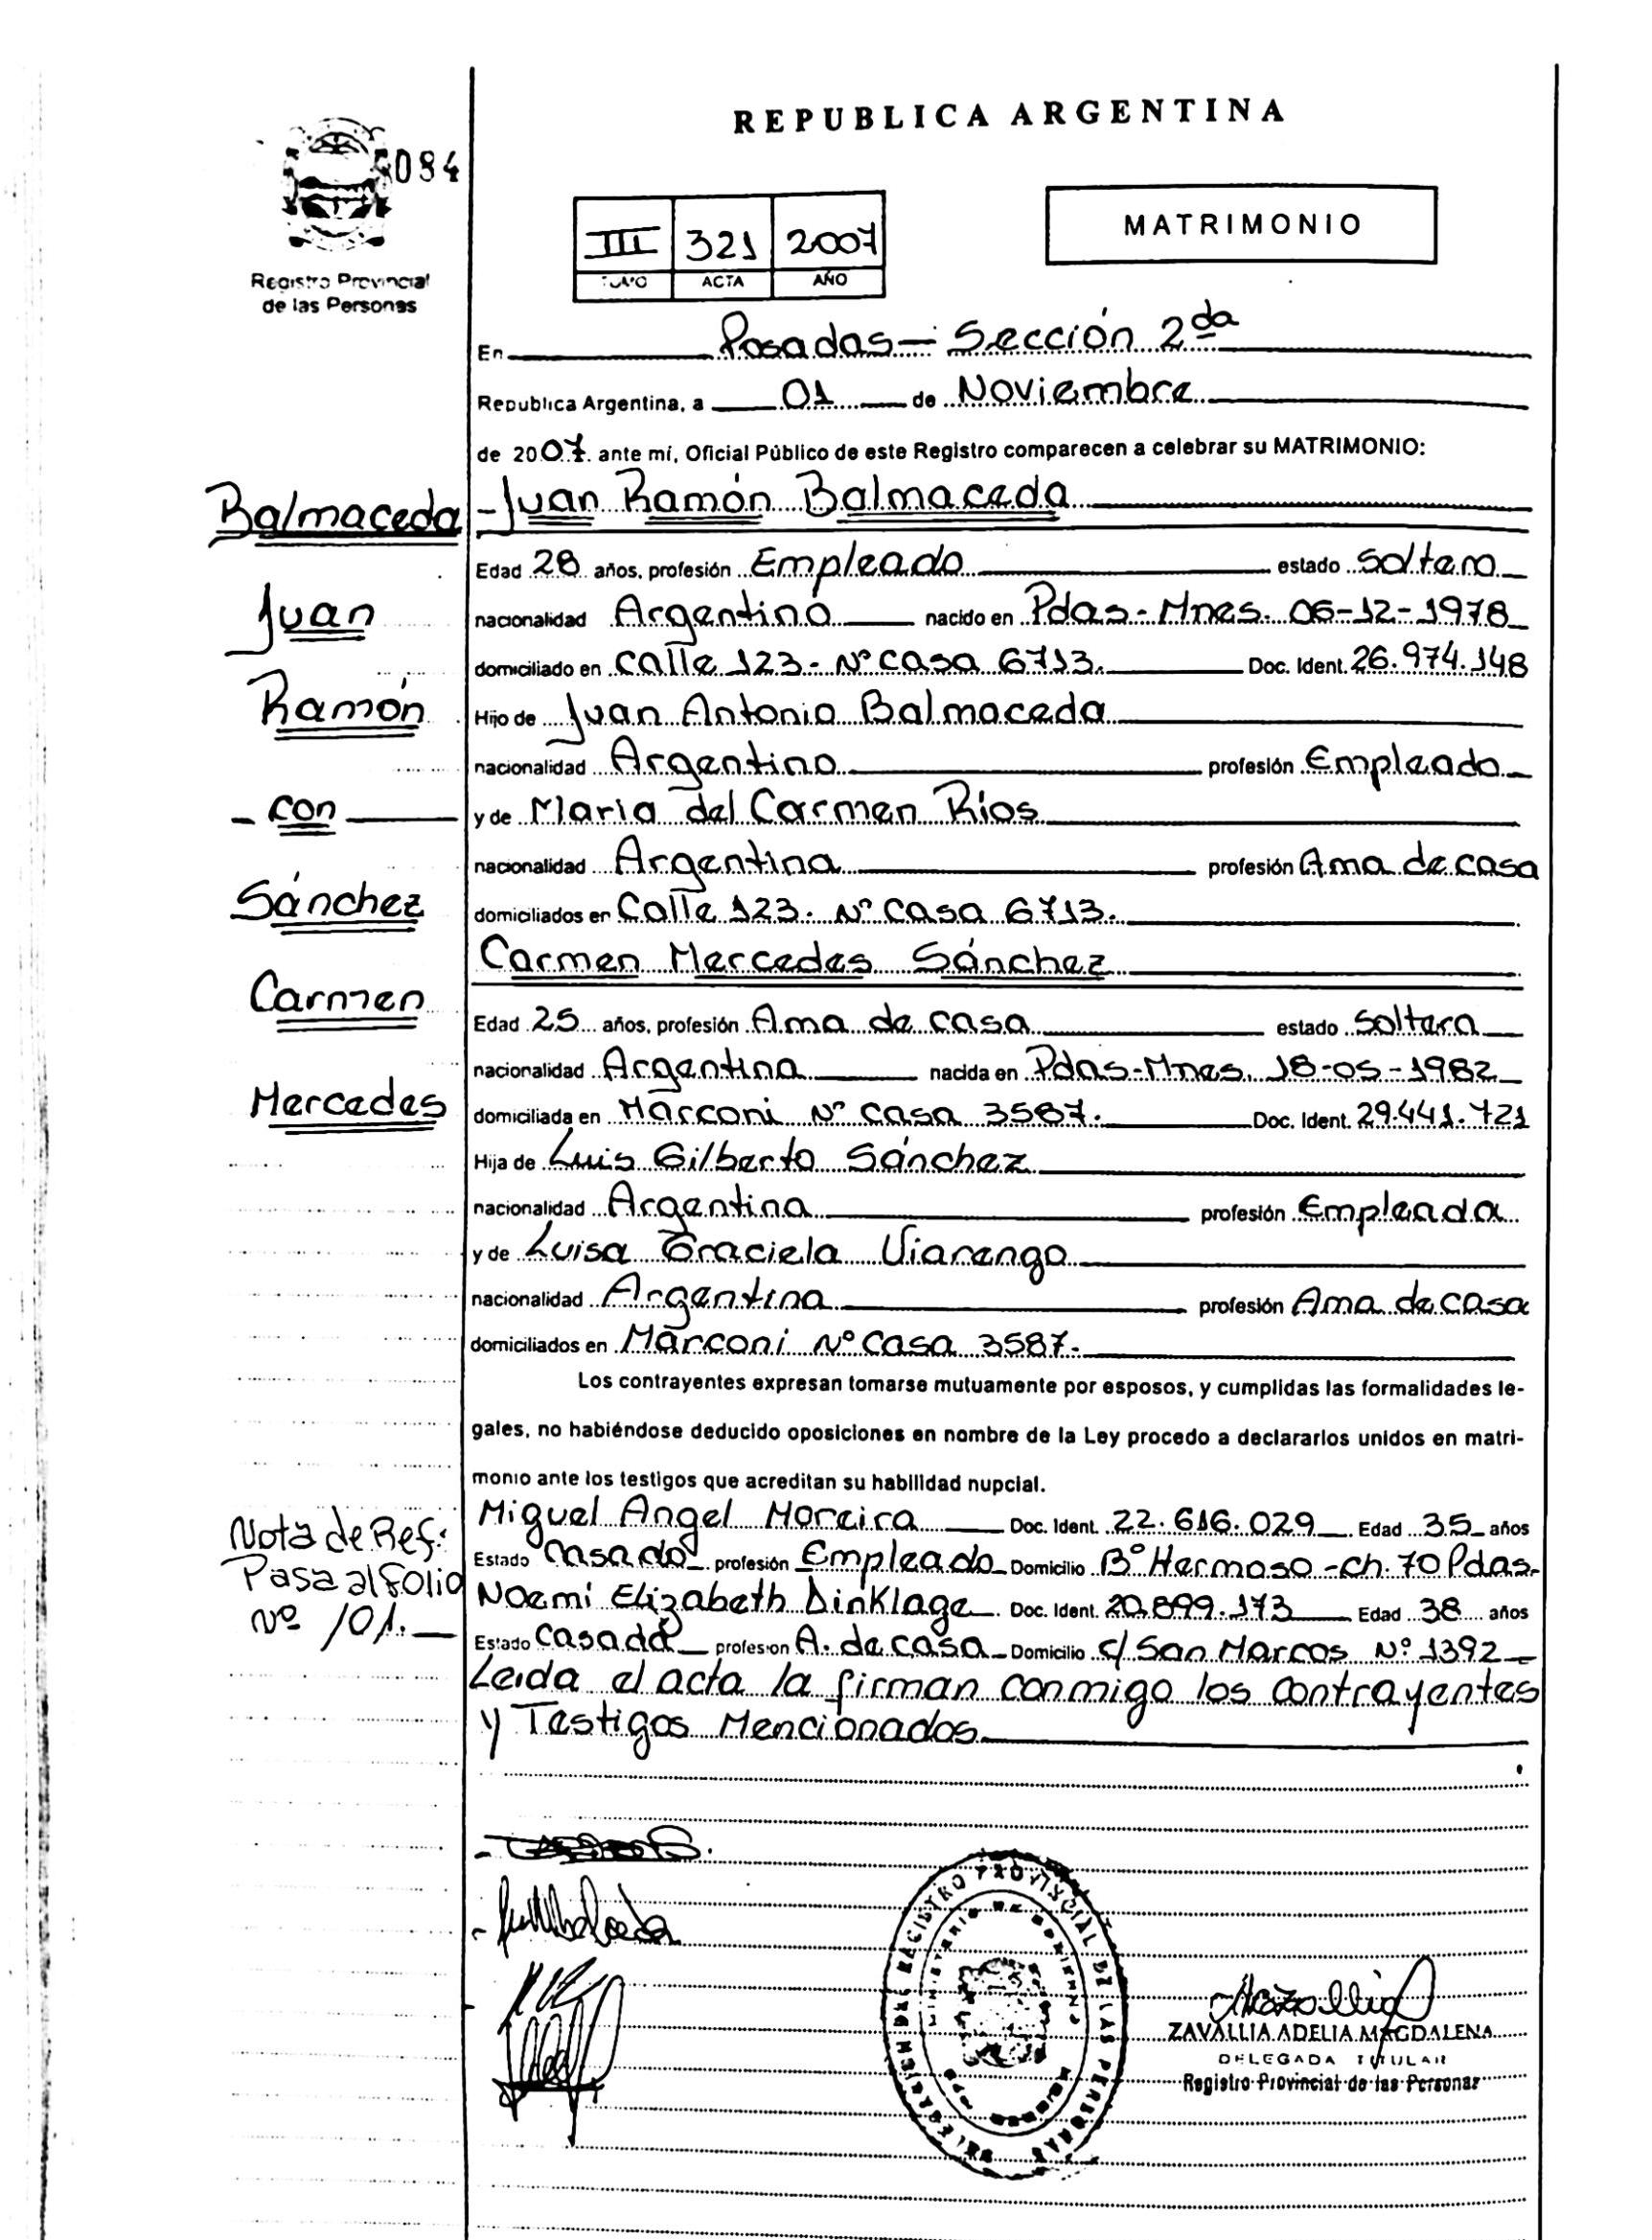 REPUBLICA ARGENTINA
084
Registro Provincial
de las Personas
III 321 2007
TOMO ACTA AÑO
MATRIMONIO
En Posadas - Sección 2da
Republica Argentina, a 01 de Noviembre
de 2007 ante mí, Oficial Público de este Registro comparecen a celebrar su MATRIMONIO:
Balmaceda
Juan
Ramón
- con
Sánchez
Carmen
Mercedes
- Juan Ramón Balmaceda
Edad 28 años, profesión Empleado estado soltero
nacionalidad Argentino nacido en Pdas - Mnes. 06-12-1978
domiciliado en calle 123 - Nº casa 6713. Doc. Ident. 26.974.148
Hijo de Juan Antonio Balmaceda
nacionalidad Argentino profesión Empleado
y de Maria del Carmen Ríos
nacionalidad Argentina profesión Ama de casa
domiciliados en Calle 123. Nº casa 6713.
Carmen Mercedes Sánchez
Edad 25 años, profesión Ama de casa estado soltera
nacionalidad Argentina nacida en Pdas-Mnes. 18-05-1982
domiciliada en Marconi Nº casa 3587. Doc. Ident. 29.441.721
Hija de Luis Gilberto Sánchez
nacionalidad Argentina profesión Empleada
y de Luisa Graciela Viarengo
nacionalidad Argentina profesión Ama de casa
domiciliados en Marconi Nº casa 3587.
Los contrayentes expresan tomarse mutuamente por esposos, y cumplidas las formalidades le-
gales, no habiéndose deducido oposiciones en nombre de la Ley procedo a declararlos unidos en matri-
monio ante los testigos que acreditan su habilidad nupcial.
Miguel Angel Moreira Doc. Ident. 22.616.029 Edad 35 años
Estado casado profesión Empleado Domicilio Bº Hermoso - ch. 70 Pdas.
Noemí Elizabeth Dinklage Doc. Ident. 20.899.173 Edad 38 años
Estado casada profesion A. de casa Domicilio c/ San Marcos Nº 1392
Leida el acta la firman conmigo los contrayentes
y Testigos Mencionados
Nota de Ref:
Pasa al folio
Nº 101.
DELEGACION DEL REGISTRO PROVINCIAL DE LAS PERSONAS
MINISTERIO DE GOBIERNO
ZAVALLIA ADELIA MAGDALENA
DELEGADA TITULAR
Registro Provincial de las Personas